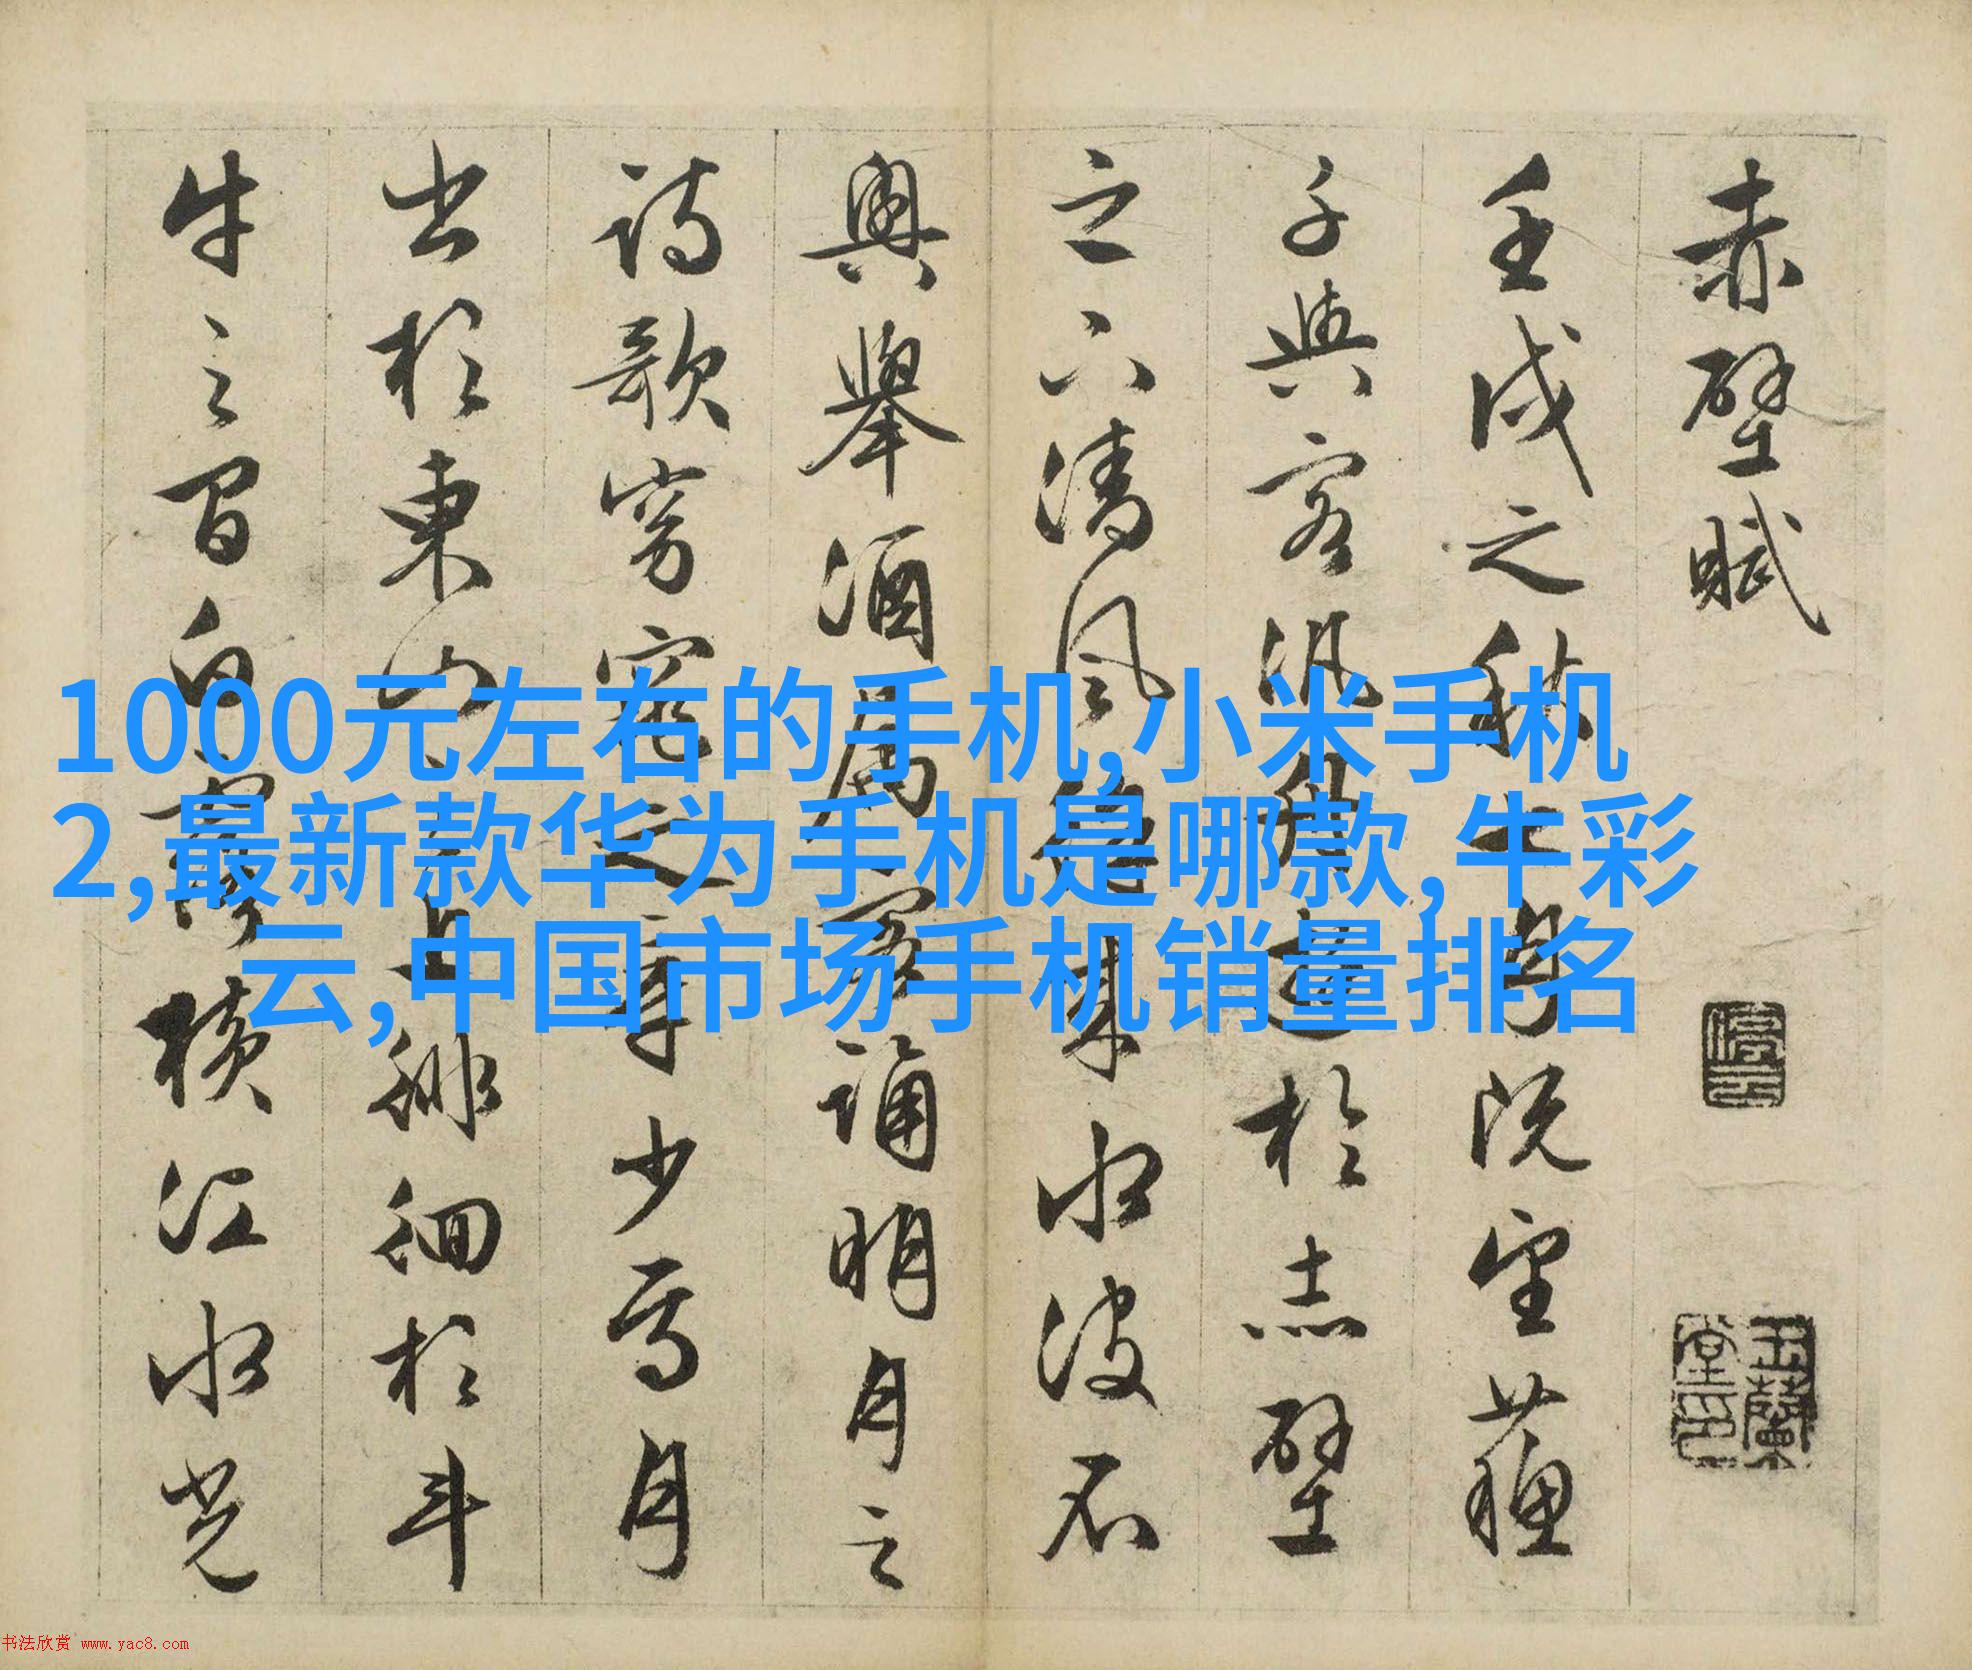 赤壁賦
壬戌之秋七月既望蘇
子與客汎舟遊於赤壁
之下清風徐來水波不
興舉酒屬客誦明月之
詩歌窈窕之章少焉月
出於東山之上徘徊於斗
牛之間白露橫江水光
停云
玉蘭堂印
1000元左右的手机,小米手机
2,最新款华为手机是哪款,牛彩
云,中国市场手机销量排名
书法欣赏 www.yac8.com